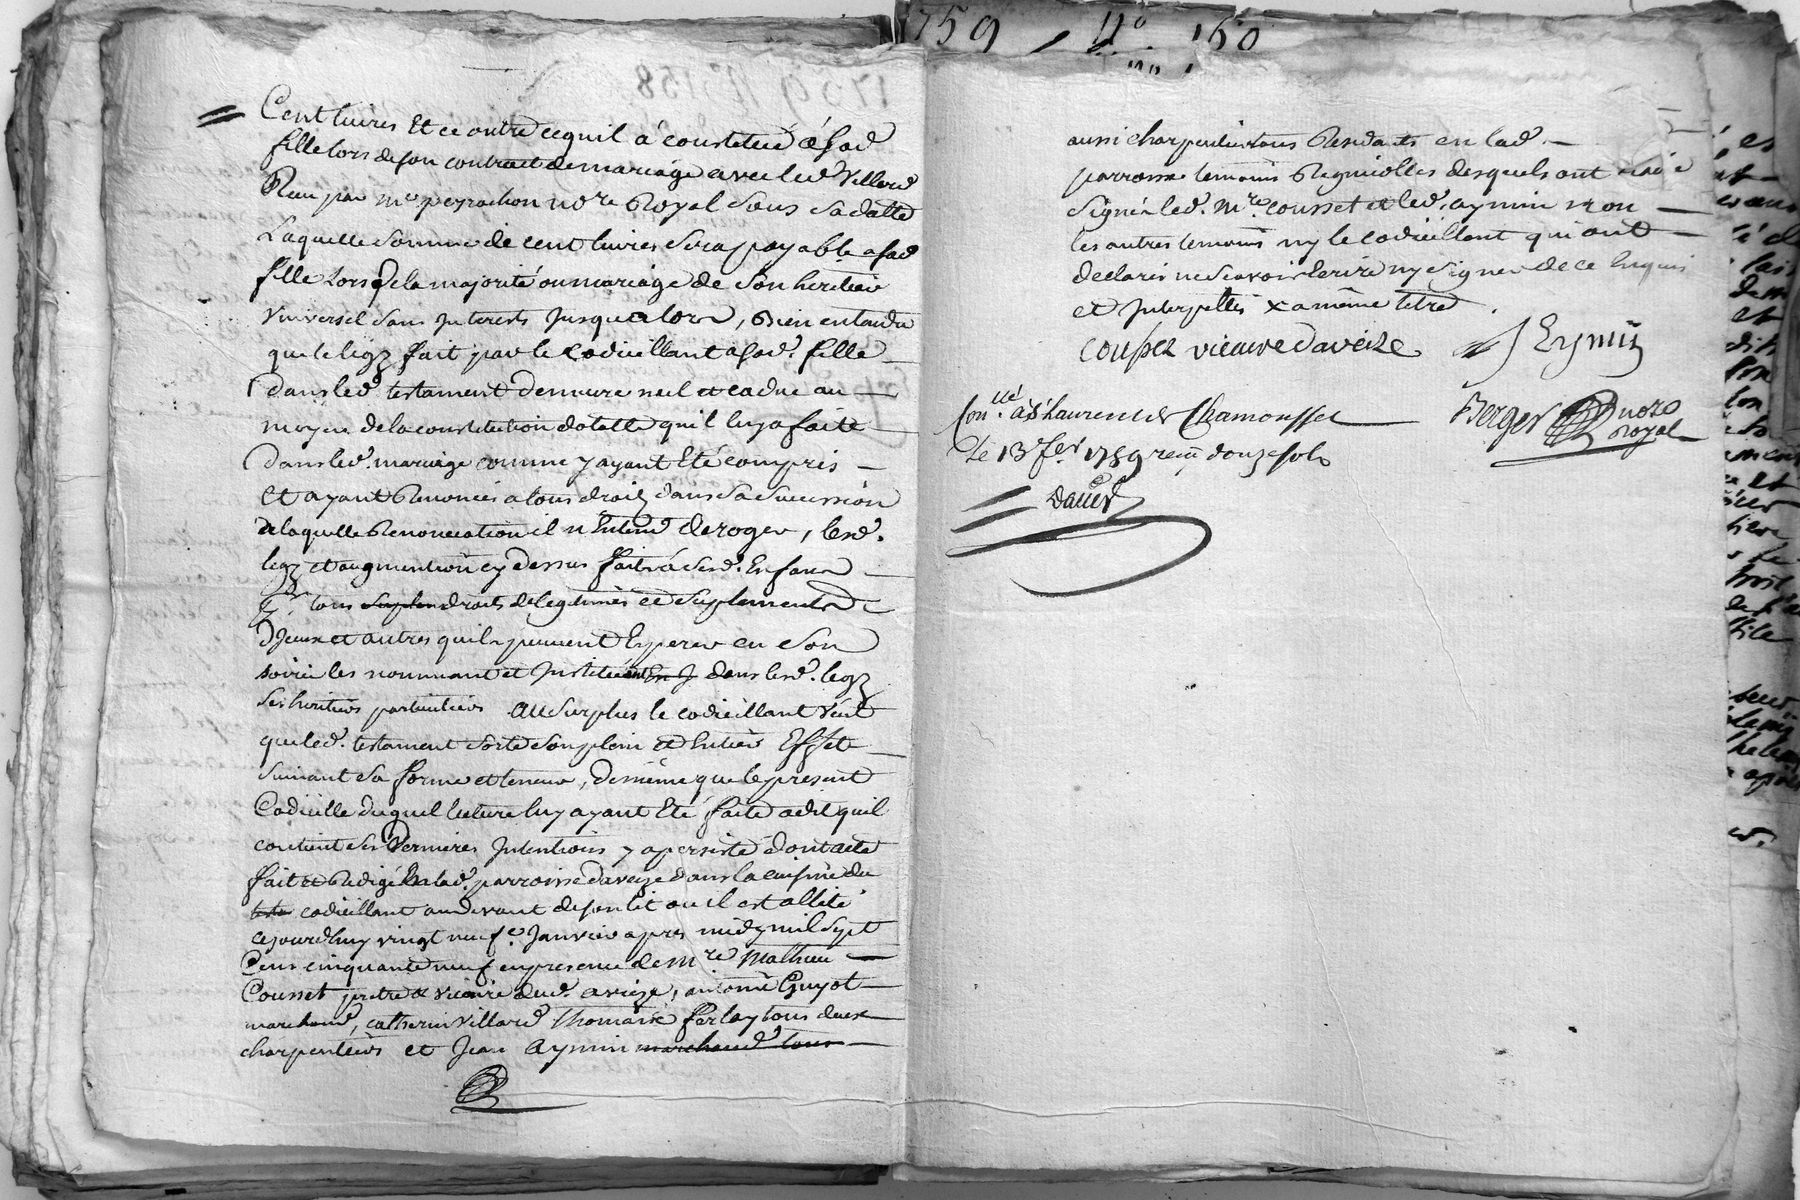 Cent livres Et ce outre cequil à constitué à sad
fille lors de son contract de mariage avec led Villard
Recu par me peyrachon nore Royal sous sa datte
Laquelle somme de cent livres sera payable a sad
fille Lors de la majorité ou mariage de son heritier
Universel sans Interests Jusqu'alors, Bien entendu
que le legz fait par le Codicillant a sad. fille
dans led testament demeure nul et caduc au
moyen de la constitution dotalle qu'il luy a faite
dans led. mariage comme y ayant Eté compris
Et ayant Renoncée a tous droitz dans sa succession
de laquelle Renonciation il n'Entend deroger, lesd.
legz et augmention cy dessus faits à sesd. Enfans
pr. tous droits de legitimes et Suplements
D'Jceux et autres quils peuvent Esperer en son
hoirie les nommant et Instituant dans lesd. legz
Ses heritiers particuliers Au Surplus le codicillant veut
que led. testament sorte son plein et Entier Effet
suivant sa forme et teneur, de même que le present
Codicille duquel lecture luy ayant Eté faite a dit quil
contient ses Dernieres Intentions y a persisté dont acte
fait et Redigé En lad. parroisse d'aveize dans la cuisine du
codicillant au devant de son lit ou il est allité
cejourdhuy vingt neufe. Janvier apres midy mil Sept
Cens cinquante neuf en presence de Mre Mathieu
Cousset pretre & vicaire dud. aveize, antoine Guyot
marchand, catherin Villard thomas ferlay tous deux
charpentiers et Jean Aymin marchand tous
1759 No 158
759, No 160
aussi charpentier tous Residants en lad.
parroisse temoins Regnicolles desquels ont
Signé led. Mre. cousset et led. aymin non
les autres temoins ny le codicillant qui ont
declarés ne scavoir Ecrire ny signer de ce Enquis
et Interpellés x a même titre
Cousset vicaire d'aveize J Eymin
Conllé. à St Laurent de Chamousset
Le 13 fer. 1759 recu douze sols
Berger nore
Royal